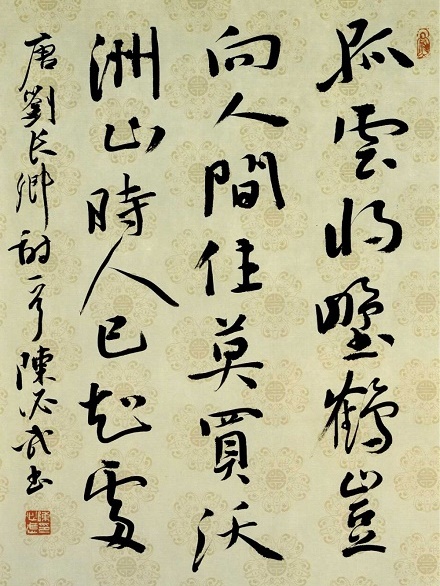 孤雲將野鶴豈
向人間住莫買沃
洲山時人已知處
唐劉長卿詩一首 陳必武書